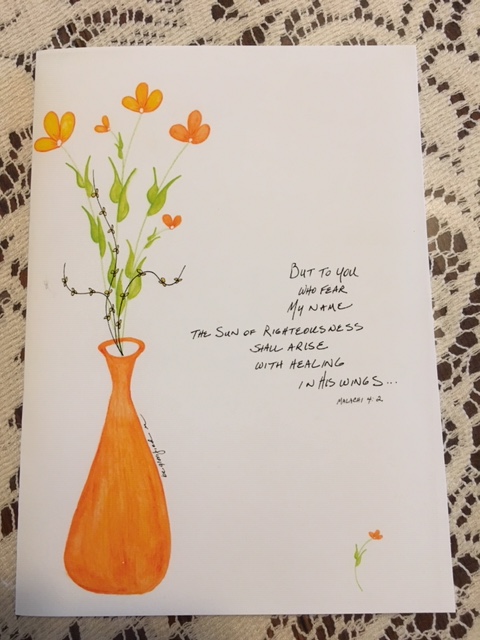 But to you
who fear
My name
The Sun of Righteousness
shall arise
with healing
in His wings...
Malachi 4:2